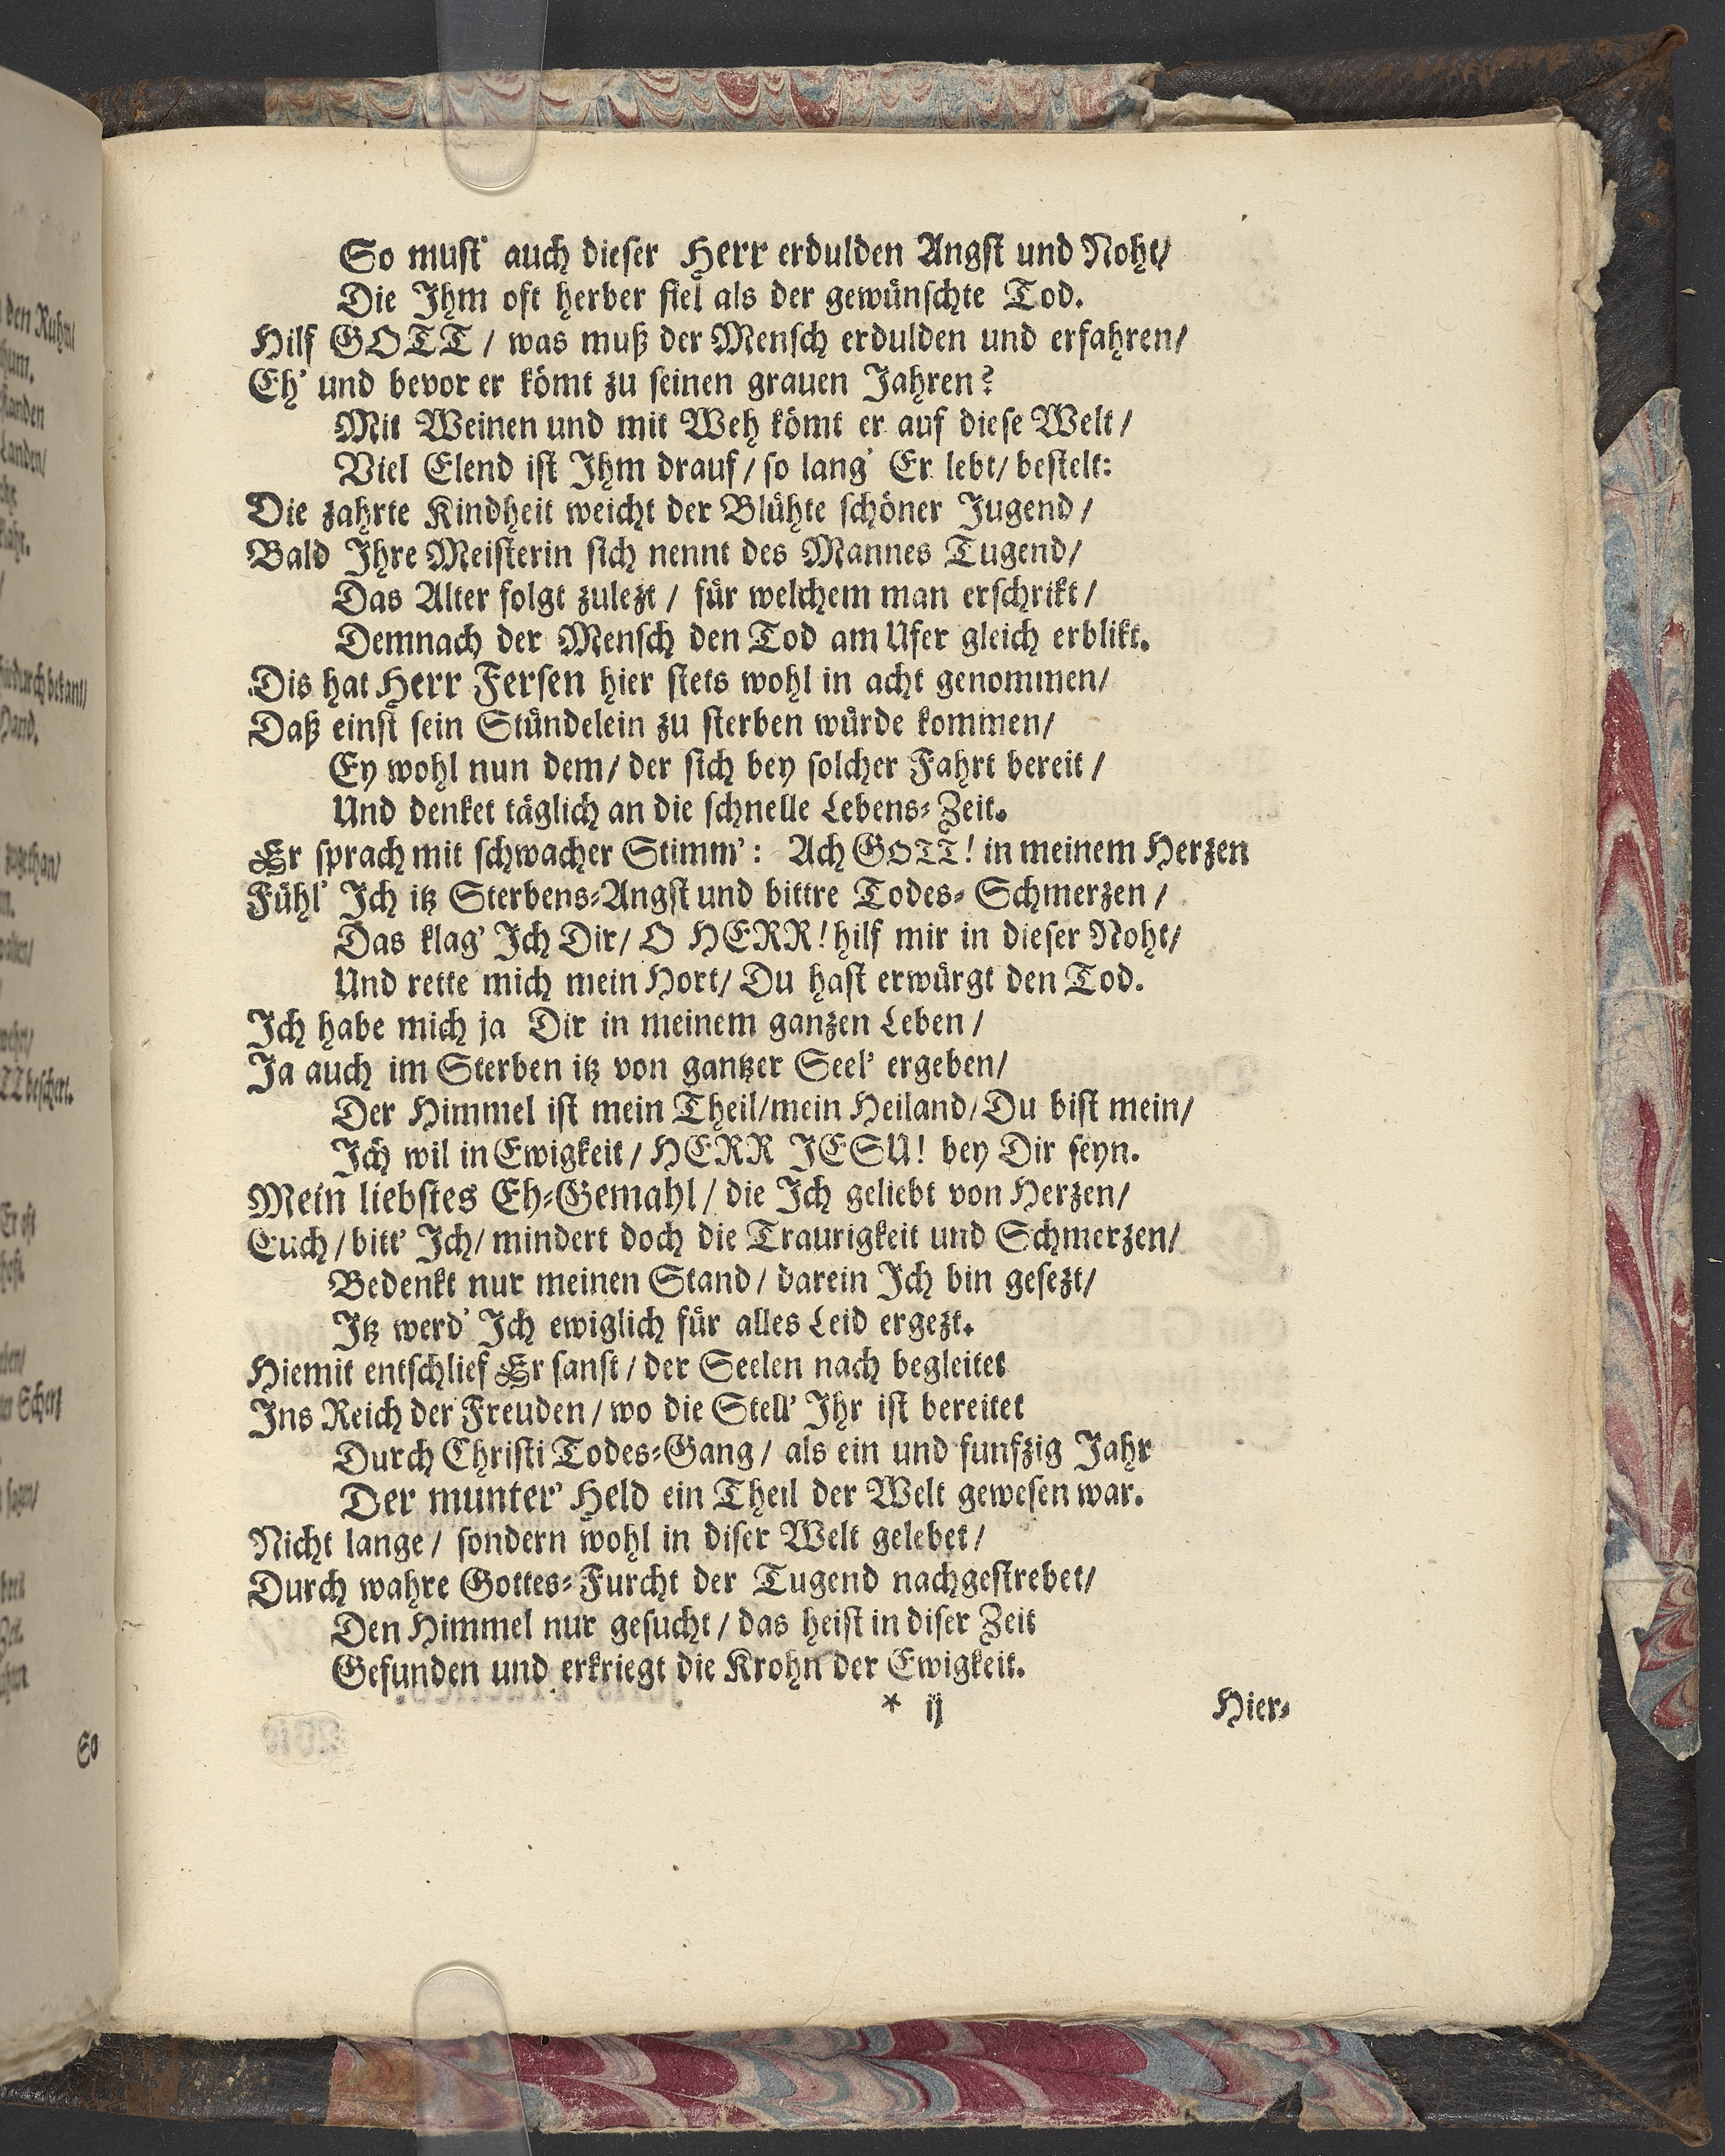 So must' auch dieser Herr erdulden Angst und Noht/
Die Ihm oft herber fiel als der gewünschte Tod.
Hilf GOTT / was muß der Mensch erdulden und erfahren/
Eh' und bevor er kömt zu seinen grauen Jahren?
Mit Weinen und mit Weh kömt er auf diese Welt/
Viel Elend ist Ihm drauf/ so lang' Er lebt/ bestelt:
Die zahrte Kindheit weicht der Blühte schöner Jugend/
Bald Ihre Meisterin sich nennt des Mannes Tugend/
Das Alter folgt zulezt / für welchem man erschrikt/
Demnach der Mensch den Tod am Ufer gleich erblikt.
Dis hat Herr Fersen hier stets wohl in acht genommen/
Daß einst sein Stündelein zu sterben würde kommen/
Ey wohl nun dem/ der sich bey solcher Fahrt bereit/
Und denket täglich an die schnelle Lebens-Zeit.
Er sprach mit schwacher Stimm': Ach GOTT! in meinem Herzen
Fühl' Ich itz Sterbens-Angst und bittre Todes-Schmerzen /
Das klag' Ich Dir/ O HERR! hilf mir in dieser Noht/
Und rette mich mein Hort/ Du hast erwürgt den Tod.
Ich habe mich ja Dir in meinem ganzen Leben /
Ja auch im Sterben itz von gantzer Seel' ergeben/
Der Himmel ist mein Theil/mein Heiland/Du bist mein/
Ich wil in Ewigkeit/ HERR JESU! bey Dir seyn.
Mein liebstes Eh-Gemahl/ die Ich geliebt von Herzen/
Euch/bitt' Ich/ mindert doch die Traurigkeit und Schmerzen/
Bedenkt nur meinen Stand/ darein Ich bin gesezt/
Itz werd' Ich ewiglich für alles Leid ergezt.
Hiemit entschlief Er sanft / der Seelen nach begleitet
Ins Reich der Freuden / wo die Stell' Ihr ist bereitet
Durch Christi Todes-Gang/ als ein und funfzig Jahr
Der munter' Held ein Theil der Welt gewesen war.
Nicht lange/ sondern wohl in diser Welt gelebet/
Durch wahre Gottes-Furcht der Tugend nachgestrebet/
Den Himmel nur gesucht/ das heist in diser Zeit
Gefunden und erkriegt die Krohn der Ewigkeit.
* ij Hier-
So